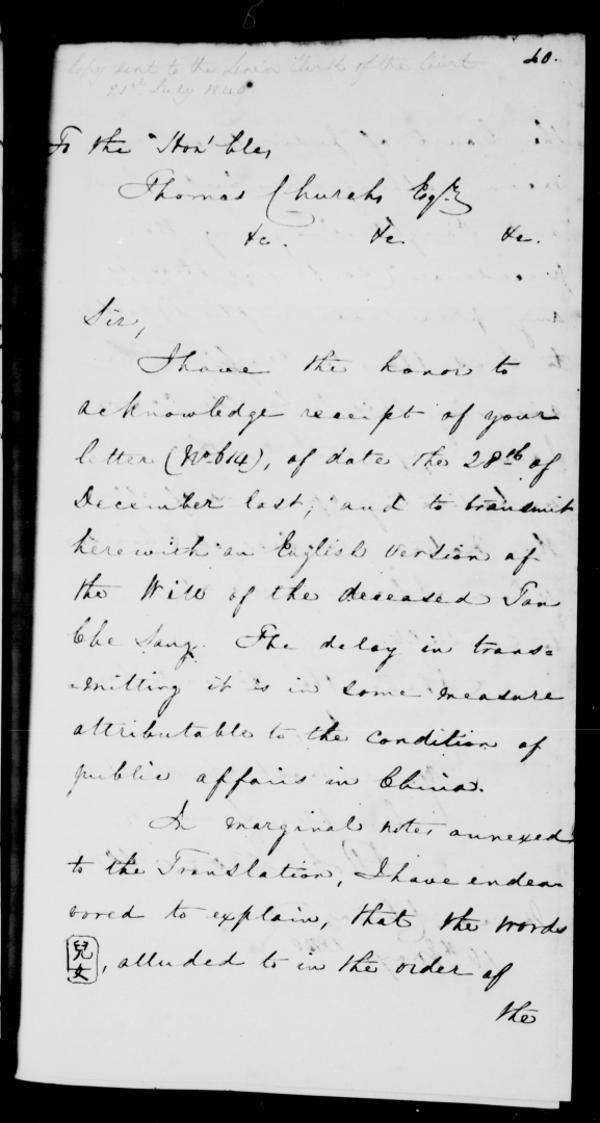 40.
Copy sent to the Senior Clerk of the Court
21st July 1840
To the Hon'ble,
Thomas Church Esqr.
&c. &c. &c.
Sir,
I have the honor to
acknowledge receipt of your
letter (No 614), of date the 28th of
December last; and to transmit
herewith an English version of
the Will of the deceased Tan
Che Sang. The delay in trans=
=mitting it is in some measure
attributable to the condition of
public affairs in China.
In marginal notes annexed
to the Translation, I have endea-
vored to explain, that the words
兒女, alluded to in the order of
the